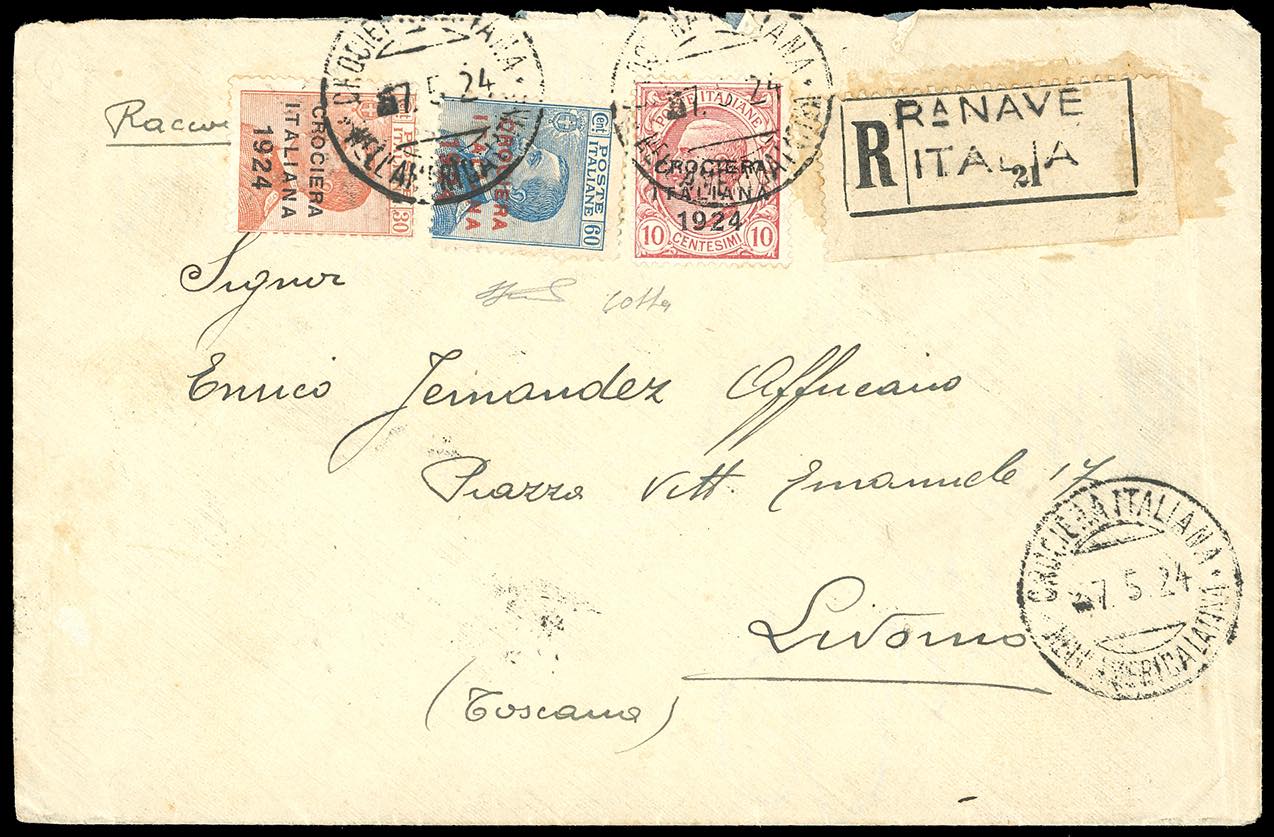 CROCIERA ITALIANA
7.5.24
CROCIERA
ITALIANA
1924
30
POSTE
ITALIANE
Cent
60
CROCIERA
ITALIANA
CROCIERA
ITALIANA
1924
10 CENTESIMI 10
R
Rª NAVE
ITALIA
21
Signor
Enrico Fernandez Affricano
Piazza Vitt. Emanuele 17
Livorno
(Toscana)
CROCIERA ITALIANA
7.5.24
NELL'AMERICA LATINA